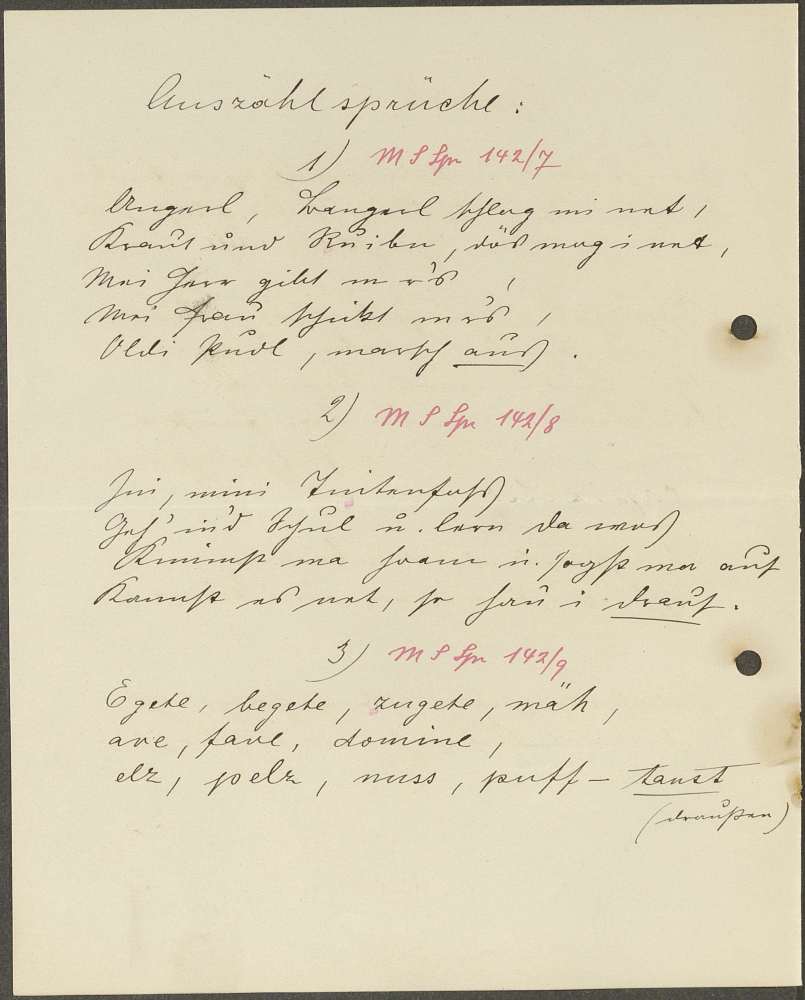 Auszählsprüche:
1) M S Spr 142/7
Angerl, Bangerl schlag mi net,
Kraut und Ruibn, dös mag i net,
Mei Herr gibt m r's,
Mei Frau schickt mrs,
Oldi Pudl, marsch aus.
2) M S Spr 142/8
mini Tintenfass
Geh' in'd Schul u. lern da was
Kimmst ma hoam u. sogst ma auf
Kannst es net, so hau i drauf.
3) M S Spr 142/9
Egete, begete, zugete, mäh,
ave, fave, domine,
elz, pelz, nuss, puff – taust
(draußen)